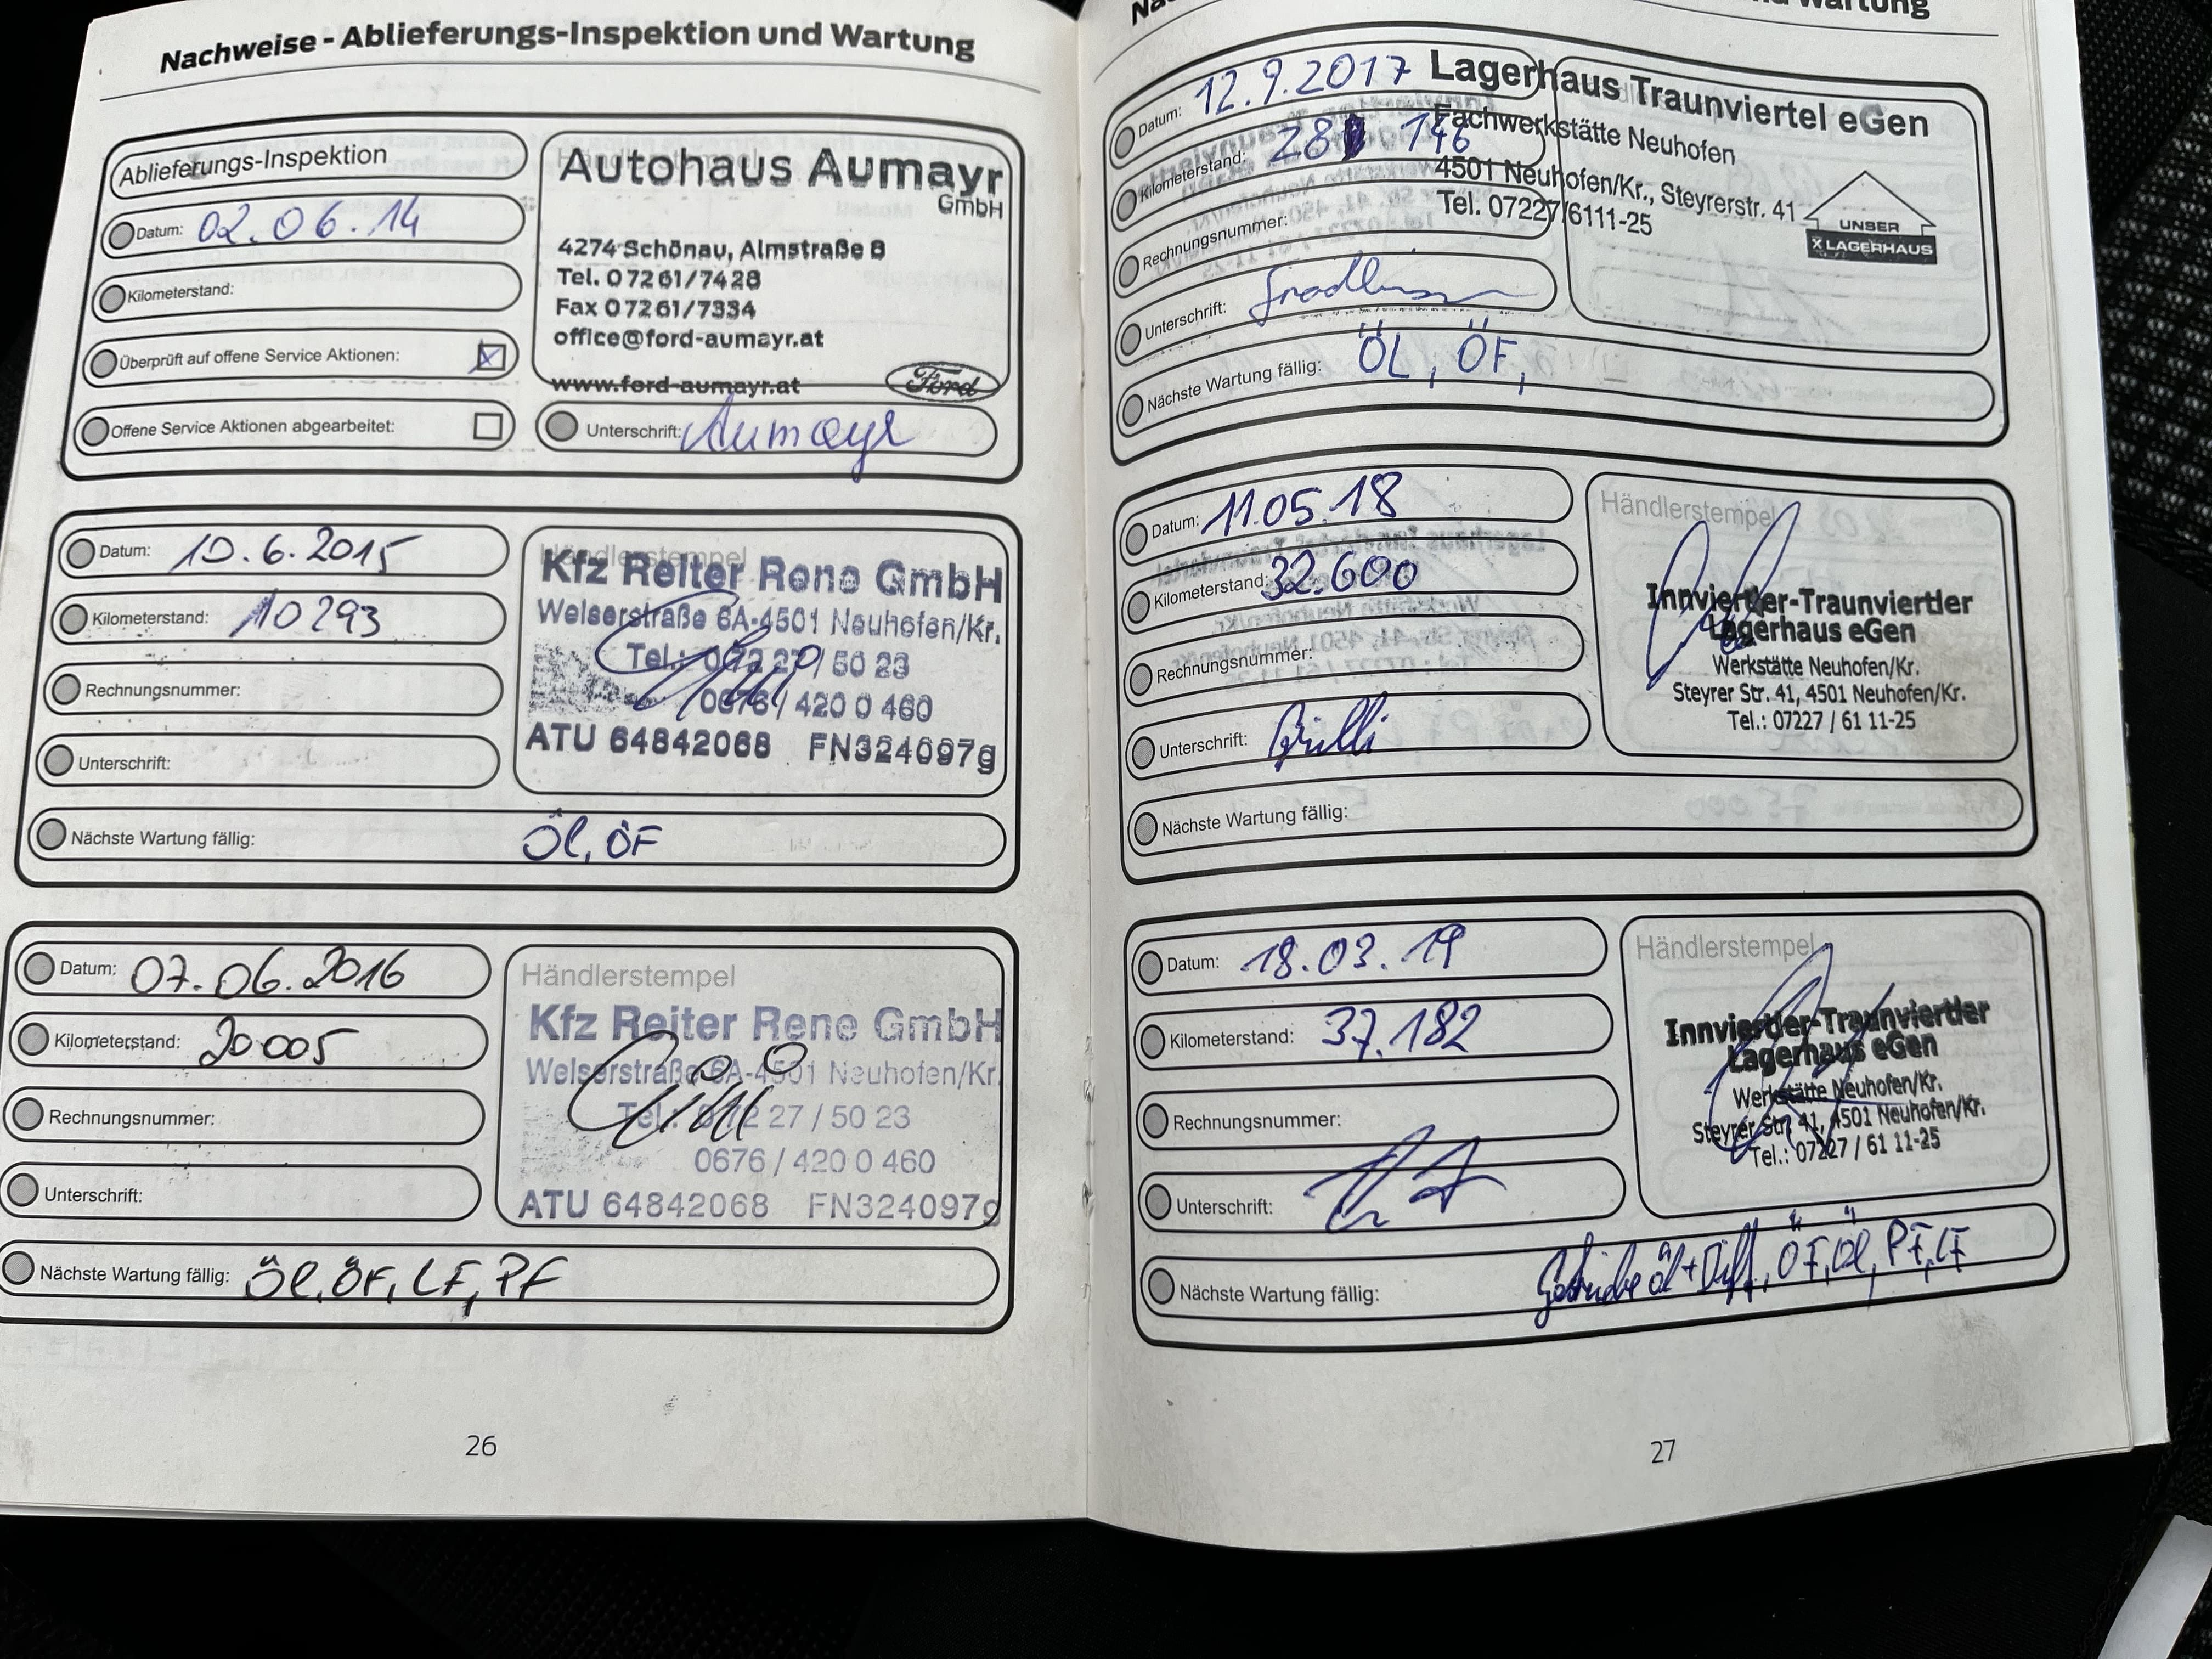 Nachweise - Ablieferungs-Inspektion und Wartung
Ablieferungs-Inspektion
Datum: 02.06.14
Kilometerstand:
Überprüft auf offene Service Aktionen:
Offene Service Aktionen abgearbeitet:
Autohaus Aumayr
GmbH
4274 Schönau, Almstraße 8
Tel. 07261/7428
Fax 07261/7334
office@ford-aumayr.at
www.ford-aumayr.at
Ford
Unterschrift: Aumayr
Datum: 10.6.2015
Kilometerstand: 10293
Rechnungsnummer:
Unterschrift:
Händlerstempel
Kfz Reiter Rene GmbH
Welserstraße 6A-4501 Neuhofen/Kr.
Tel.: 072 27 / 50 23
0676 / 420 0 460
ATU 64842068 FN324097g
Nächste Wartung fällig: Öl, ÖF
Datum: 07.06.2016
Kilometerstand: 20005
Rechnungsnummer:
Unterschrift:
Händlerstempel
Kfz Reiter Rene GmbH
Welserstraße 6A-4501 Neuhofen/Kr.
Tel.: 072 27 / 50 23
0676 / 420 0 460
ATU 64842068 FN324097g
Nächste Wartung fällig: Öl, ÖF, LF, PF
26
Wartung
Datum: 12.9.2017
Kilometerstand: 28 146
Rechnungsnummer:
Unterschrift:
Lagerhaus Traunviertel eGen
Fachwerkstätte Neuhofen
4501 Neuhofen/Kr., Steyrerstr. 41
Tel. 07227/6111-25
UNSER
X LAGERHAUS
Nächste Wartung fällig: ÖL, ÖF,
Datum: 11.05.18
Kilometerstand: 32.600
Rechnungsnummer:
Unterschrift:
Händlerstempel
Innviertler-Traunviertler
Lagerhaus eGen
Werkstätte Neuhofen/Kr.
Steyrer Str. 41, 4501 Neuhofen/Kr.
Tel.: 07227 / 61 11-25
Nächste Wartung fällig:
Datum: 18.03.19
Kilometerstand: 37.182
Rechnungsnummer:
Unterschrift:
Händlerstempel
Innviertler-Traunviertler
Lagerhaus eGen
Werkstätte Neuhofen/Kr.
Steyrer Str. 41, 4501 Neuhofen/Kr.
Tel.: 07227 / 61 11-25
Nächste Wartung fällig: Getriebe öl + Diff., ÖF, Öl, PF, LF
27